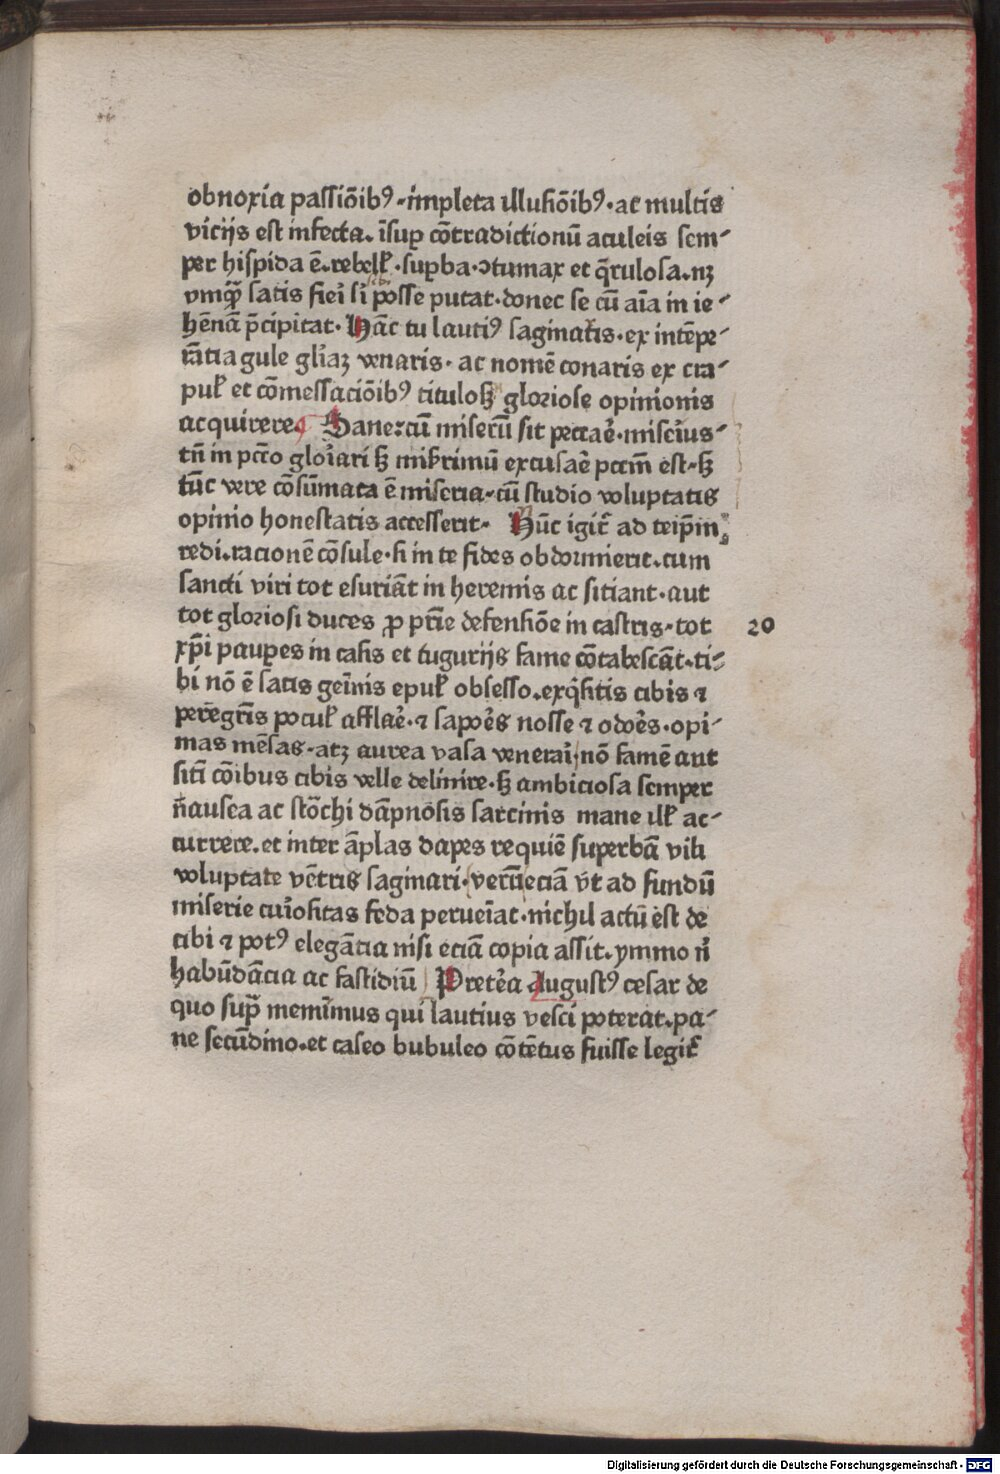 obnoxia passiōibꝰ · impleta illusiōibꝰ · ac multis
vicijs est infecta. īsuꝑ cōtradictionū aculeis sem⸗
per hispida ē. rebelł · suꝑba · ꝯtumax et q̄rulosa. nꝫ
vmꝙ̄ satis fieī si posse putat · donec se cū aīa in ie⸗
hēnā p̄cipitat · Hāc tu lautiꝰ saginaƚis · ex intēpe⸗
rātia gule gl̄iaꝫ venaris · ac nomē conaris ex cra⸗
pulˀ et cōmessaciōibꝰ titulosꝫ gloriose opinionis
acquirere. Sane: cū miserū sit peccaē̉ · miserius⸗
tn̄ in pctō gloīari sꝫ miƀrimū excusaē̉ pccm̄ est · sꝫ
tūc vere cōsūmata ē miseria · cū studio voluptatis
opinio honestatis accesserit · Hūc igit̉ ad teip̄m
redi. racionē cōsule · si in te fides obdormierit. cum
sancti viri tot esuriāt in heremis ac sitiant · aut
tot gloriosi duces ꝓ pr̄ie defensiōe in castris · tot
xp̄i pauꝑes in casis et tugurijs fame cōtabescāt · ti⸗
bi nō ē satis geīnis epulˀ obsesso. exq̄sitis cibis ⁊
peregr̄is poculˀ afflaē̉ · ⁊ sapoē̉s nosse ⁊ odoē̉s · opi⸗
mas mēsas · atꝫ aurea vasa venerai̇ · nō famē aut
sitī cōibus cibis velle delinire · sꝫ ambiciosa semper
nausea ac stōchi dāpnosis sarcinis mane illˀ ac⸗
currere. et inter āplas dapes requiē superbā vili
voluptate vētris saginari · verūeciā vt ad fundū
miserie cuīositas feda perueīat · nichil actū est de
cibi ⁊ potꝰ elegācia nisi eciā copia assit. ymmo n̄
habūdācia ac fastidiū Pretē̉a Augustꝰ cesar de
quo sup̄ memīmus qui lautius vesci poterat. pa⸗
ne secūdino. et caseo bubuleo cōtētus fuisse legit̉
20
Digitalisierung gefördert durch die Deutsche Forschungsgemeinschaft - DFG